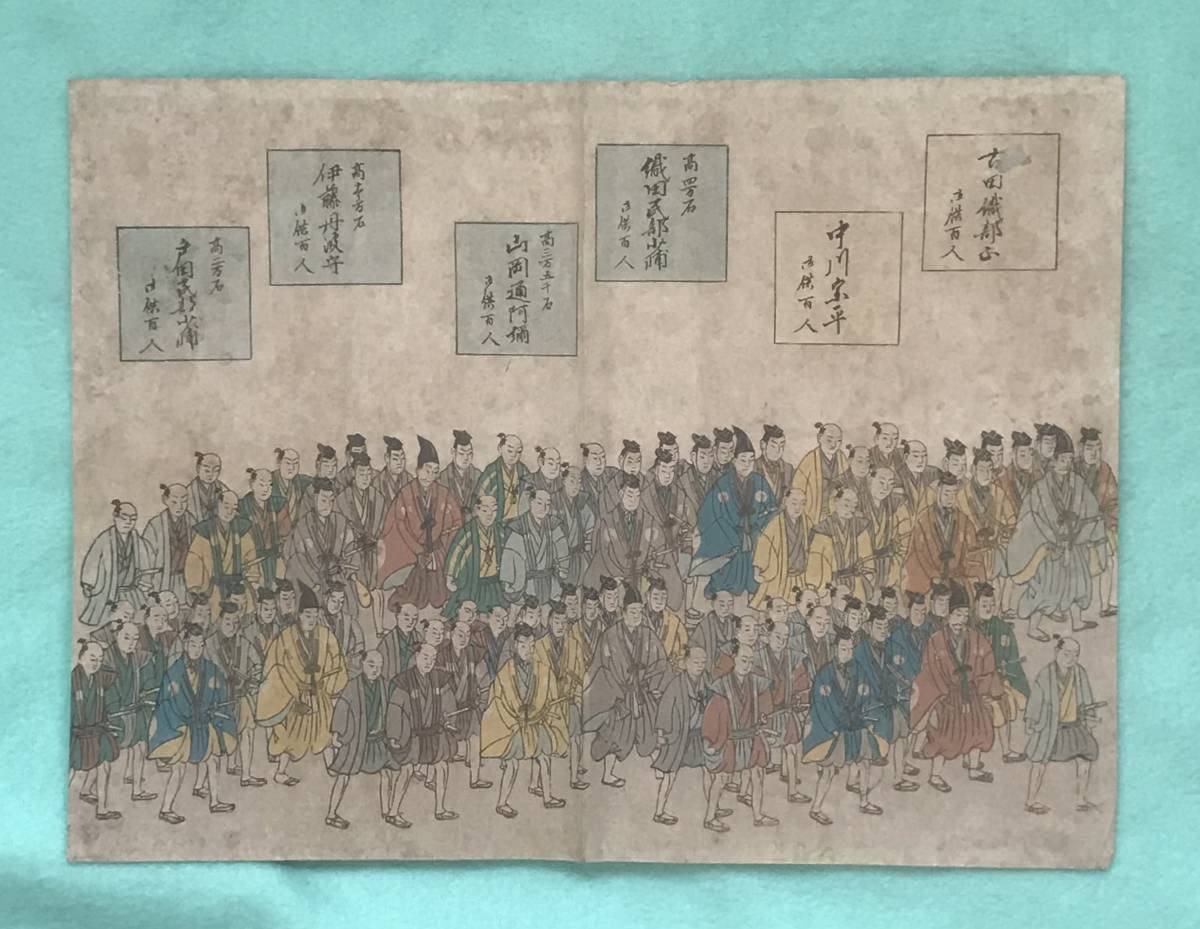 古田織部正
御供百人
中川宗平
御供百人
高四万石
織田民部少輔
御供百人
高二万五千石
山岡道阿彌
御供百人
伊藤丹波守
御供百人
高二万石
戸田民部少輔
御供百人